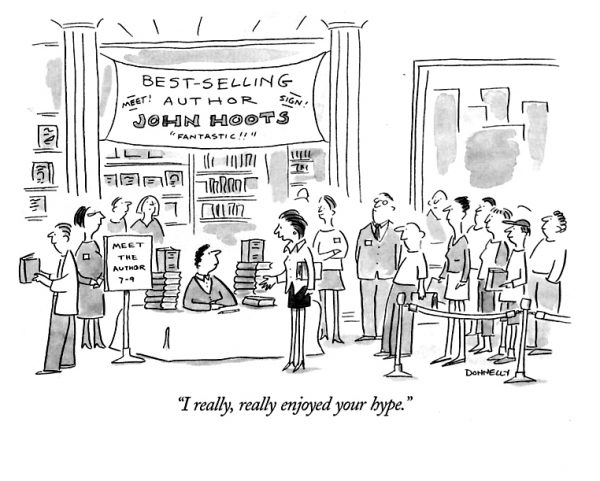 BEST-SELLING
MEET! AUTHOR SIGN!
JOHN HOOTS
"FANTASTIC!!"
MEET
THE
AUTHOR
7-9
DONNELLY
"I really, really enjoyed your hype."